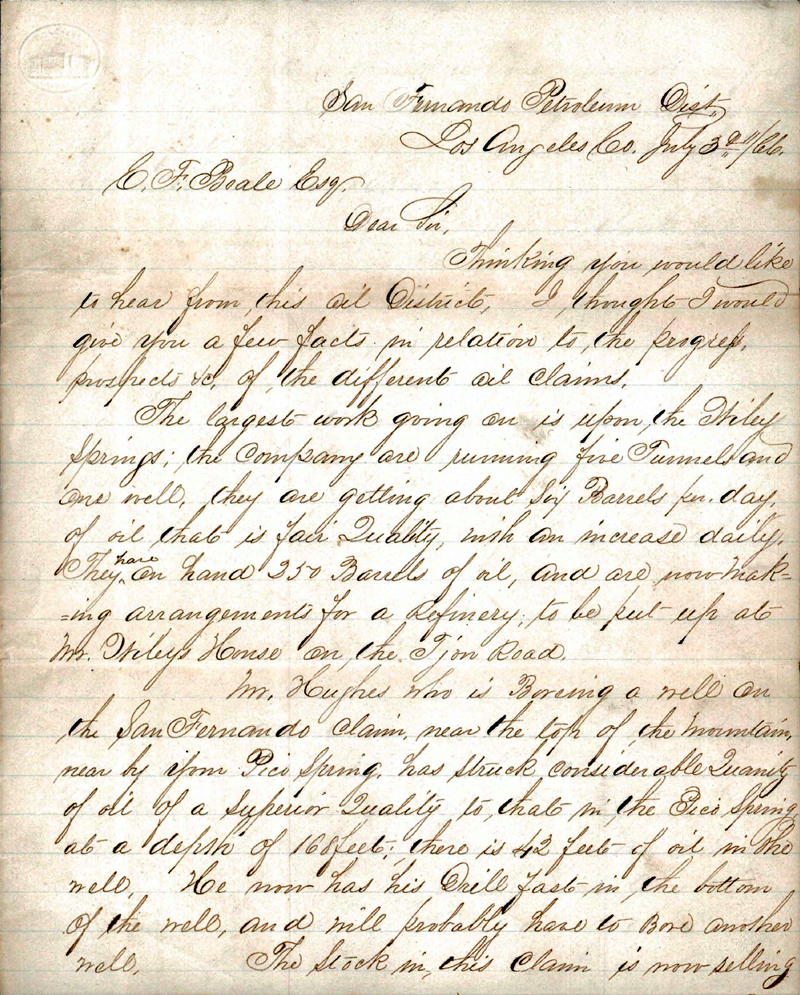 San Fernando Petroleum Dist.
Los Angeles Co. July 3d "/66.
E. F. Beale Esq.
Dear Sir,
Thinking you would like
to hear from this oil District, I thought I would
give you a few facts in relation to the progress,
prospects &c. of the different oil claims.
The largest work going on is upon the Wiley
Springs; the Company are running five Tunnels and
one well, they are getting about Six Barrels per. day,
of oil that is fair Quality, with an increase daily.
They have on hand 250 Barrels of oil, and are now mak-
=ing arrangements for a Refinery; to be put up at
Mr. Wileys House on the Tjon Road.
Mr. Hughes who is Boreing a well on
the San Fernando claim, near the top of the mountain,
near by your Pico Spring, has struck considerable Quanity
of oil of a Superior Quality to that in the Pico Spring,
at a depth of 168 feet; there is 42 feet of oil in the
well, He now has his Drill fast in the bottom
of the well, and will probably have to Bore another
well. The Stock in this Claim is now selling